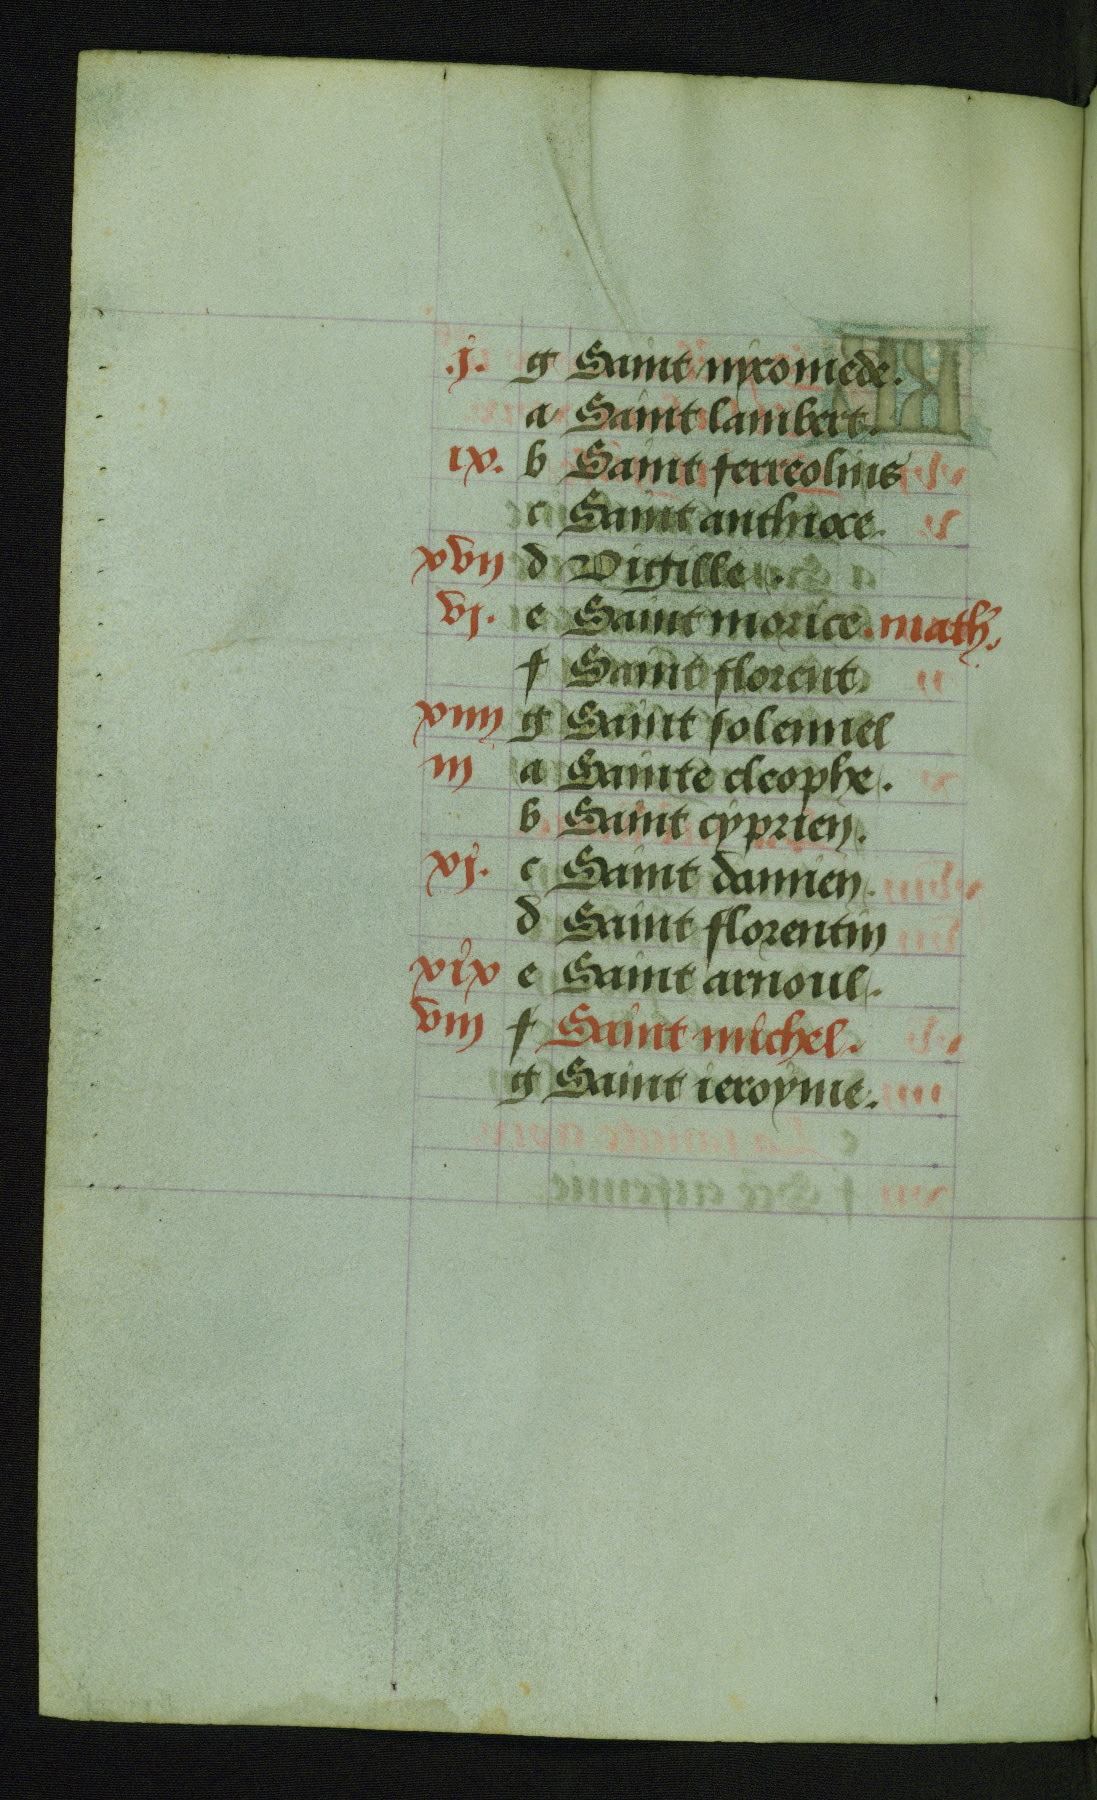 .j. g Saint nycomede.
a Saint lambert.
ix. b Saint ferreolus
c Saint anthioce.
xvij d Vigille.
vj. e Saint morice. math.
f Saint florent
xiiij g Saint solennel
iij a Sainte cleophe.
b Saint cyprien.
xj. c Saint damien.
d Saint florentin
xix e Saint arnoul.
viij f Saint michel.
g Saint ieroyme.